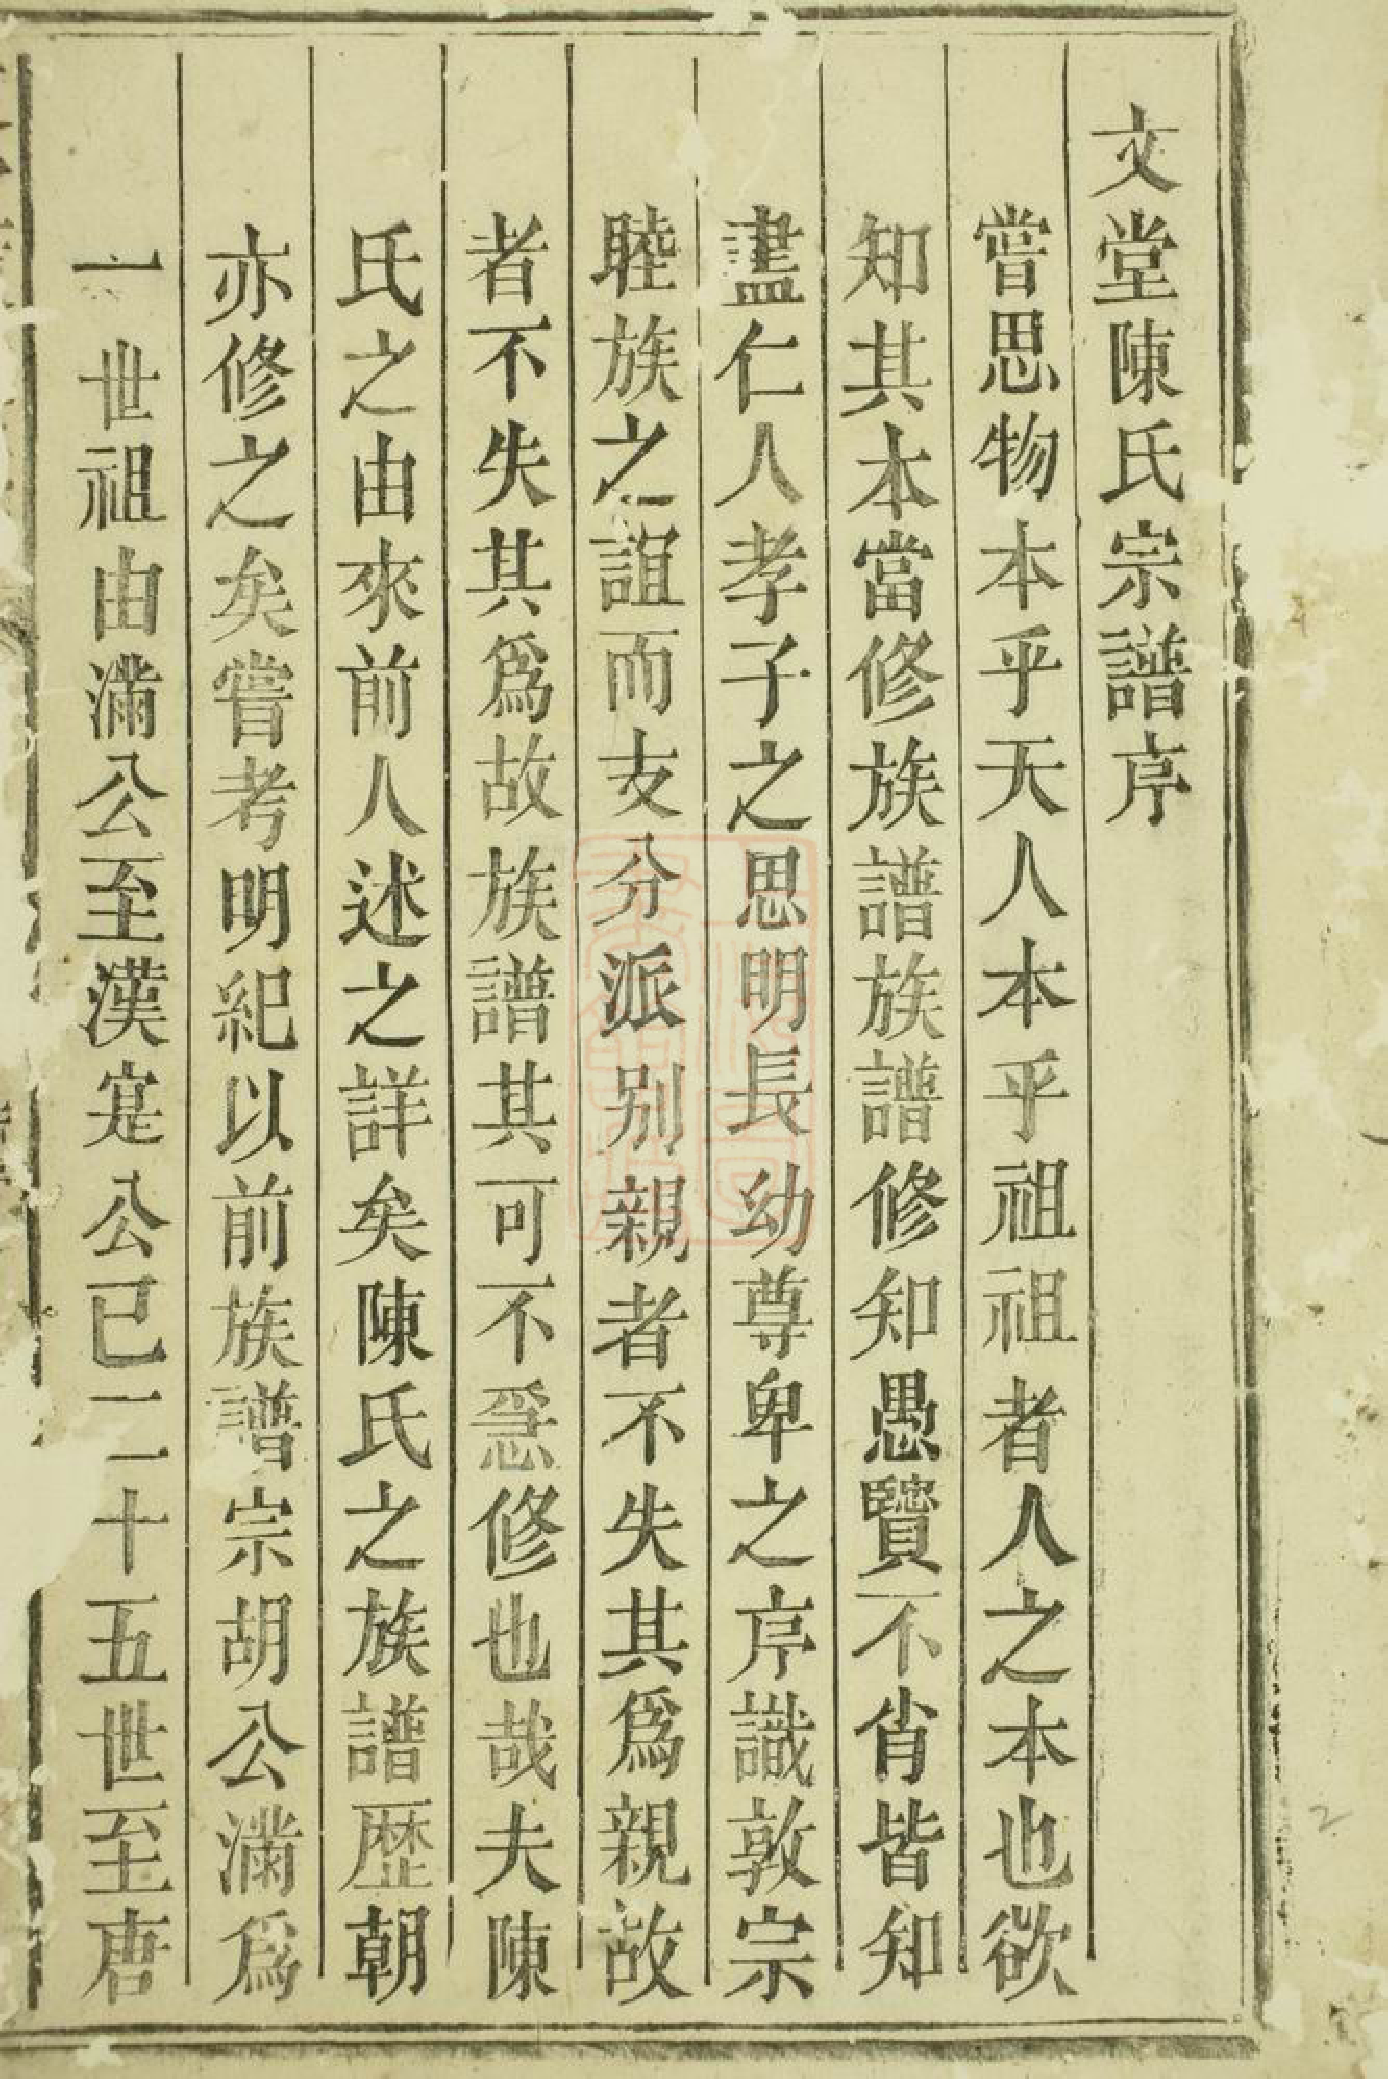 文堂陳氏宗譜序
嘗思物本乎天人本乎祖祖者人之本也欲
知其本當修族譜族譜修知愚賢不肖皆知
盡仁人孝子之思明長幼尊卑之序識敦宗
睦族之誼而支分派别親者不失其爲親故
者不失其爲故族譜其可不急修也哉夫陳
氏之由來前人述之詳矣陳氏之族譜歷朝
亦修之矣嘗考明紀以前族譜宗胡公滿爲
一世祖由滿公至漢寔公已二十五世至唐